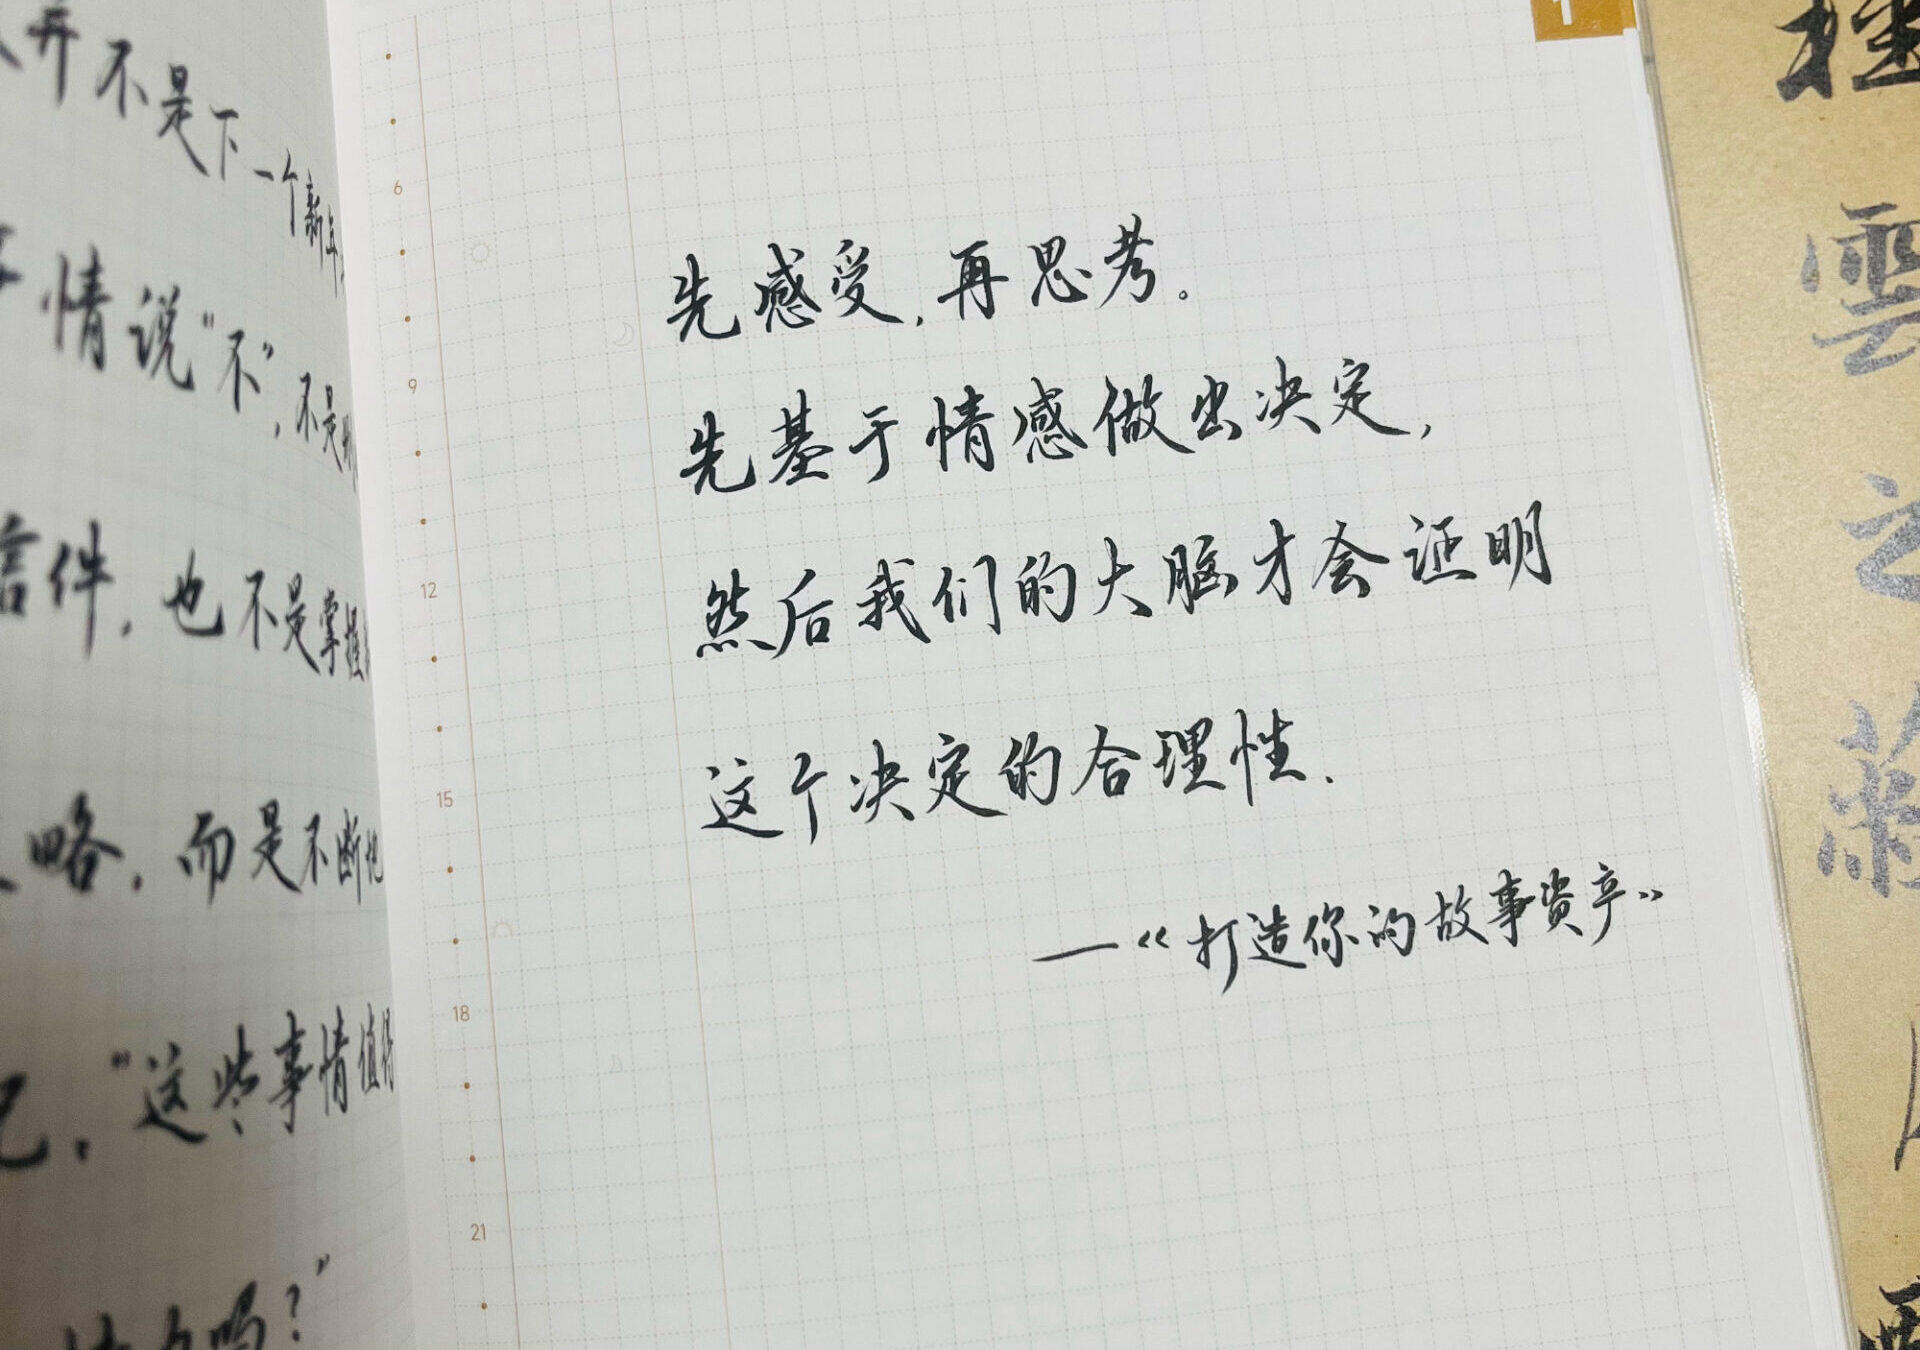 弃不是下一个新
情说“不”，不是
信件，也不是掌握
略，而是不断地
“这些事情值得
吗？”
6
9
12
15
18
21
先感受，再思考。
先基于情感做出决定，
然后我们的大脑才会证明
这个决定的合理性.
—《打造你的故事资产》
1
雲
之